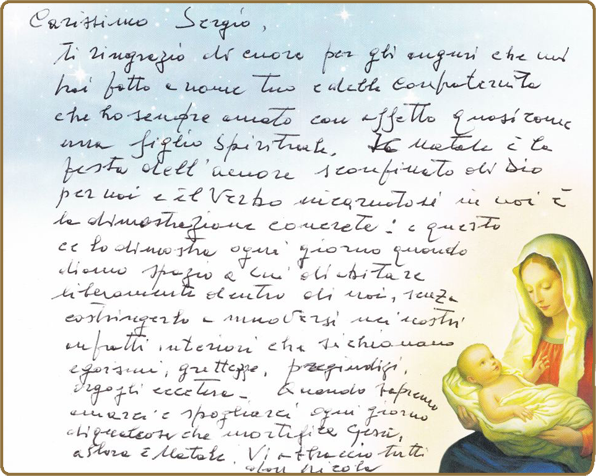 Carissimo Sergio,
ti ringrazio di cuore per gli auguri che mi
hai fatto a nome tuo e della Confraternita
che ho sempre amato con affetto quasi come
una figlia Spirituale. Il Natale è la
festa dell'amore sconfinato di Dio
per noi e il Verbo incarnatosi in noi è
la dimostrazione concreta: e questo
ce lo dimostra ogni giorno quando
diamo spazio a Lui di abitare
liberamente dentro di noi, senza
costringerlo a muoversi nei nostri
anfratti interiori che si chiamano
egoismi, grettezze, pregiudizi,
orgogli eccetera. Quando sapremo
amarci e spogliarci ogni giorno
di qualcosa che mortifica Gesù,
allora è Natale. Vi abbraccio tutti
don Nicola